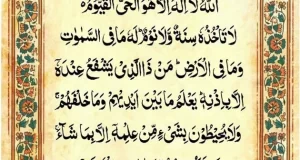 اَللّٰهُ لَاۤ اِلٰهَ اِلَّا هُوَ الْحَیُّ الْقَیُّوْمُ
لَا تَاْخُذُهٗ سِنَةٌ وَّلَا نَوْمٌ لَهٗ مَا فِی السَّمٰوٰتِ
وَمَا فِی الْاَرْضِ مَنْ ذَا الَّذِیْ یَشْفَعُ عِنْدَهٗۤ
اِلَّا بِاِذْنِهٖ یَعْلَمُ مَا بَیْنَ اَیْدِیْهِمْ وَمَا خَلْفَهُمْ
وَلَا یُحِیْطُوْنَ بِشَیْءٍ مِّنْ عِلْمِهٖۤ اِلَّا بِمَا شَآءَ